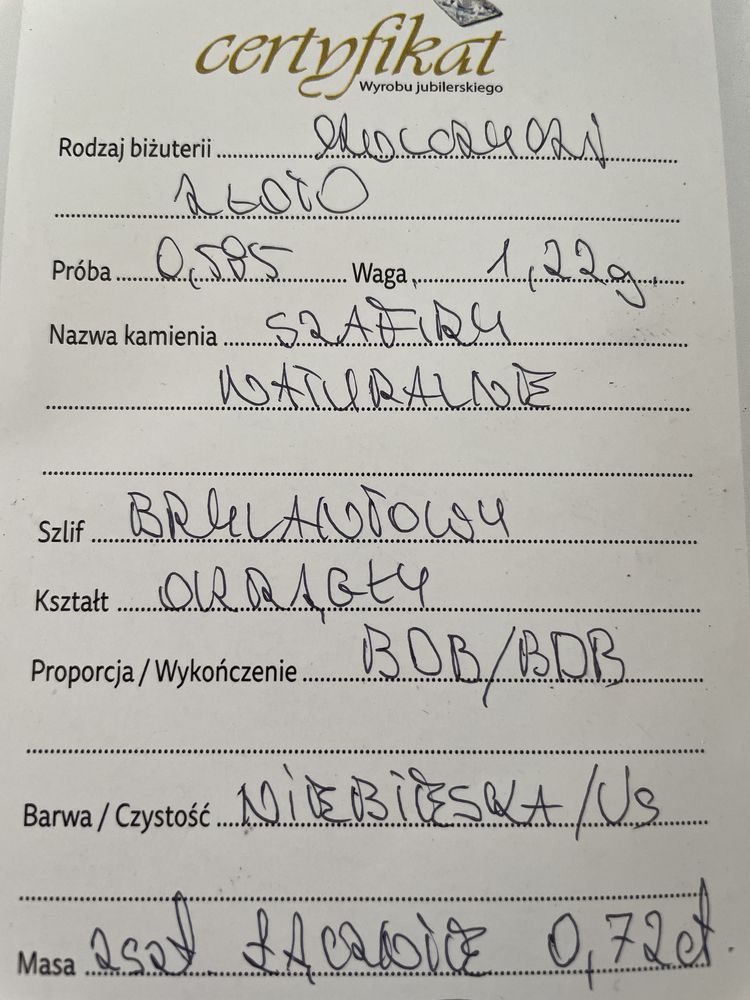 certyfikat
Wyrobu jubilerskiego
Rodzaj biżuterii
ZŁOTO
Próba 0,585 Waga 1,22g.
Nazwa kamienia SZAFIRY
NATURALNE
Szlif BRYLANTOWY
Kształt OKRĄGŁY
Proporcja / Wykończenie BDB/BDB
Barwa / Czystość NIEBIESKA/VS
Masa 2szt. ŁĄCZNIE 0,72ct.